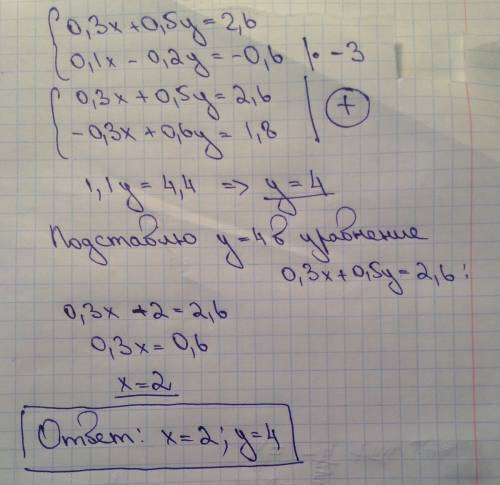 0,3x + 0,5y = 2,6
0,1x - 0,2y = -0,6 | · -3
0,3x + 0,5y = 2,6
-0,3x + 0,6y = 1,8 | +
1,1y = 4,4 => y = 4
Подставлю y=4 в уравнение
0,3x + 0,5y = 2,6:
0,3x + 2 = 2,6
0,3x = 0,6
x = 2
Ответ: x = 2; y = 4